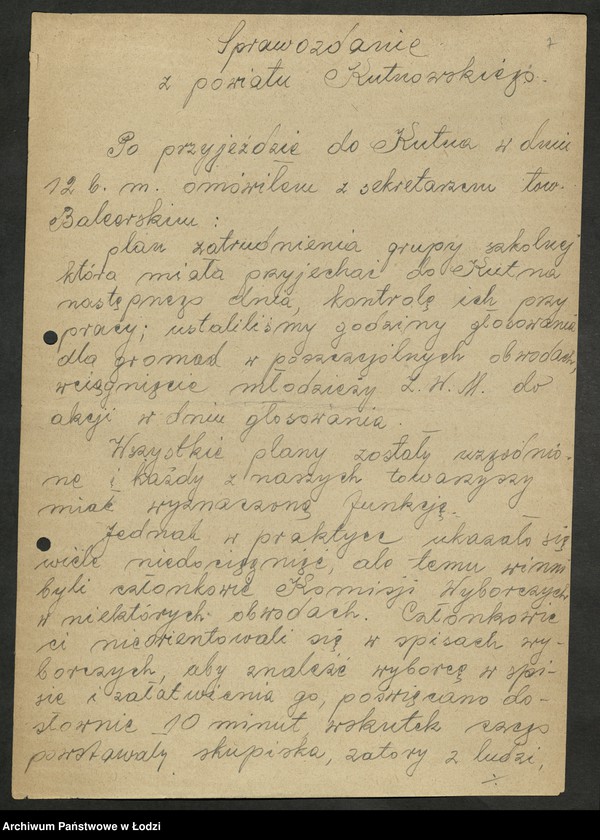 Sprawozdanie
z powiatu Kutnowskiego.
Po przyjeździe do Kutna w dniu
12 b. m. omówiłem z sekretarzem tow.
Balcerskim :
plan zatrudnienia grupy szkolnej
która miała przyjechać do Kutna
następnego dnia, kontrolę ich przy
pracy; ustaliliśmy godziny głosowania
dla gromad w poszczególnych obwodach,
wciągnięcie młodzieży Z. W. M. do
akcji w dniu głosowania.
Wszystkie plany zostały uzgodnio-
ne i każdy z naszych towarzyszy
miał wyznaczoną funkcję.
Jednak w praktyce ukazało się
wiele niedociągnięć, ale temu winni
byli członkowie Komisji Wyborczych
w niektórych obwodach. Członkowie
ci nieorientowali się w spisach wy-
borczych, aby znaleść wyborcę w spi-
sie i załatwienia go, poświęcano do-
słownie 10 minut, wskutek czego
powstawały skupiska, zatory z ludzi,
./.
Archiwum Państwowe w Łodzi